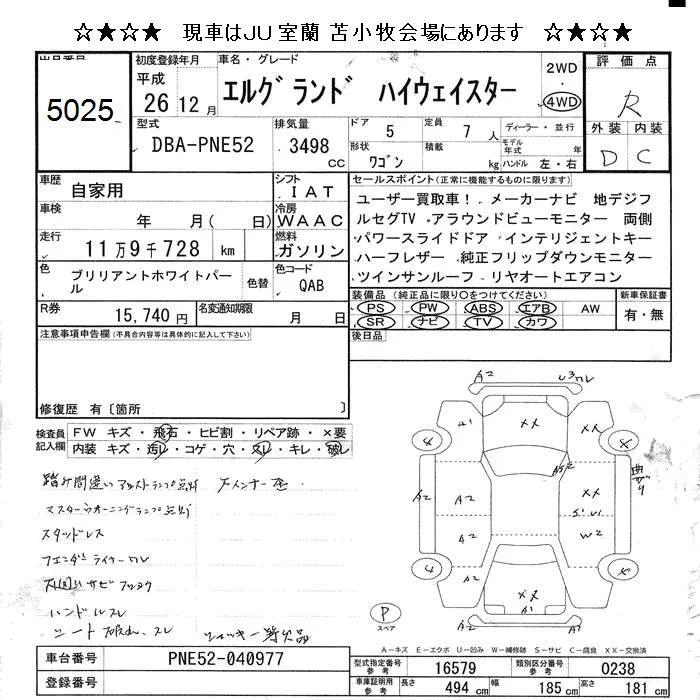 ☆★☆★ 現車はJU室蘭 苫小牧会場にあります ☆★☆★
出品番号
5025
初度登録年月
平成
26 12月
車名・グレード
エルグランド ハイウェイスター
2WD
4WD
評価点
R
外装 内装
D C
型式
DBA-PNE52
排気量
3498 cc
ドア 5
形状 ワゴン
定員 7人
積載 kg
ディーラー・並行
モデル年式 年
ハンドル 左・右
車歴 自家用
シフト IAT
車検 年 月(日)
冷房 WAAC
走行 11万9千728 km
燃料 ガソリン
色 ブリリアントホワイトパール
色替
色コード QAB
R券 15,740円
名変通知期限 月 日
セールスポイント(正常に機能するものに限ります)
ユーザー買取車!.メーカーナビ 地デジフ
ルセグTV .アラウンドビューモニター 両側
パワースライドドア .インテリジェントキー
.ハーフレザー .純正フリップダウンモニター
.ツインサンルーフ .リヤオートエアコン
装備品(純正品に限り○をつけてください)
PS PW ABS エアB AW
SR ナビ TV カワ
新車保証書
有・無
後日品
注意事項申告欄(不具合内容等は具体的に記入して下さい)
修復歴 有〔箇所 〕
検査員記入欄
FW キズ・飛石・ヒビ割・リペア跡・×要
内装 キズ・汚レ・コゲ・穴・スレ・キレ・破レ
踏み間違いアシストランプ点灯
マスターウォーニングランプ点灯
スタッドレス
フェンダーライナーワレ
下回りサビ
ハンドルスレ
シート破れ、スレ
ジャッキ欠品
A2
U3ワレ
A1
XX
4
4
A2
A2
XX
A2
A2
W2
A2
4
4
A2
XX
A1
A2
曲がり
P
スペア
A−キズ E−エクボ U−凹み W−補修跡 S−サビ C−腐食 XX−交換済
車台番号 PNE52-040977
登録番号
型式指定番号 参考 16579
類別区分番号 参考 0238
車庫証明用 参考 長さ 494 cm 幅 185 cm 高さ 181 cm